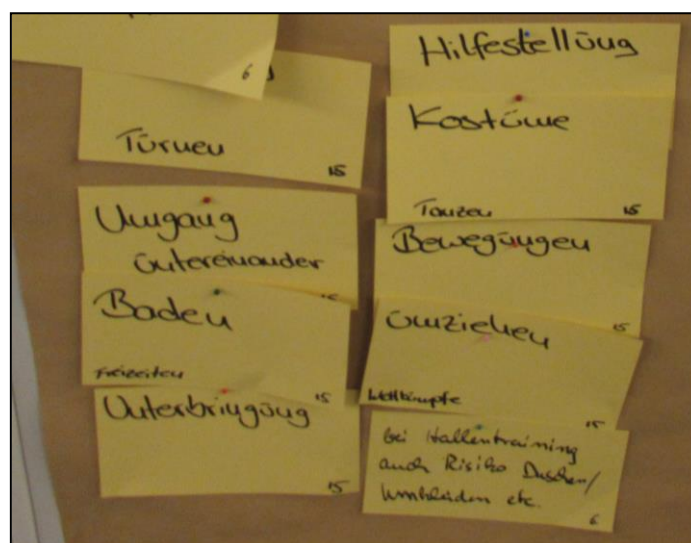 6
Turnen
15
Umgang
untereinander
Baden
Freizeiten
15
Unterbringung
15
Hilfestellung
Kostüme
Tanzen
15
Bewegungen
15
Umziehen
Wettkämpfe
15
bei Hallentraining
auch Risiko Duschen/
Umkleiden etc.
6